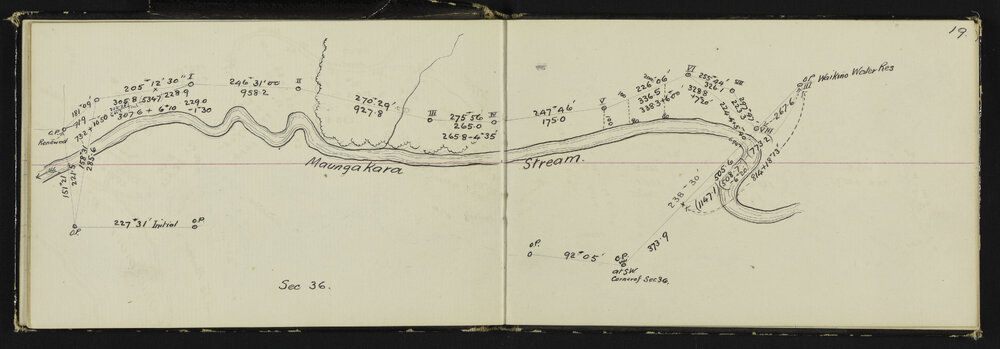 19.
205° 12' 30" I
246° 31' 00
958.2
II
270° 29'
927.8
III
275° 56
265.0
265.8-4°35'
IV
247° 46'
175.0
V
100
226° 06'
336.5
338.3+6°00'
VI
255° 44'
326.1
328.8
+7°20'
VII
VIII
267.6
O.P. Waikino Water Res
III
181°09'
O.P.
Renewed
305.8
307.6 + 6°10
228.9
229.0
-1°30
285.6
221.5
Maungakara
Stream.
(773.2)
505.6
508.7
6°20'
(1147.1)
814+18°13'
238 - 30'
373.9
O.P.
227° 31' Initial
O.P.
O.P.
92° 05'
O.P.
at SW
Corner of Sec 36.
Sec 36.